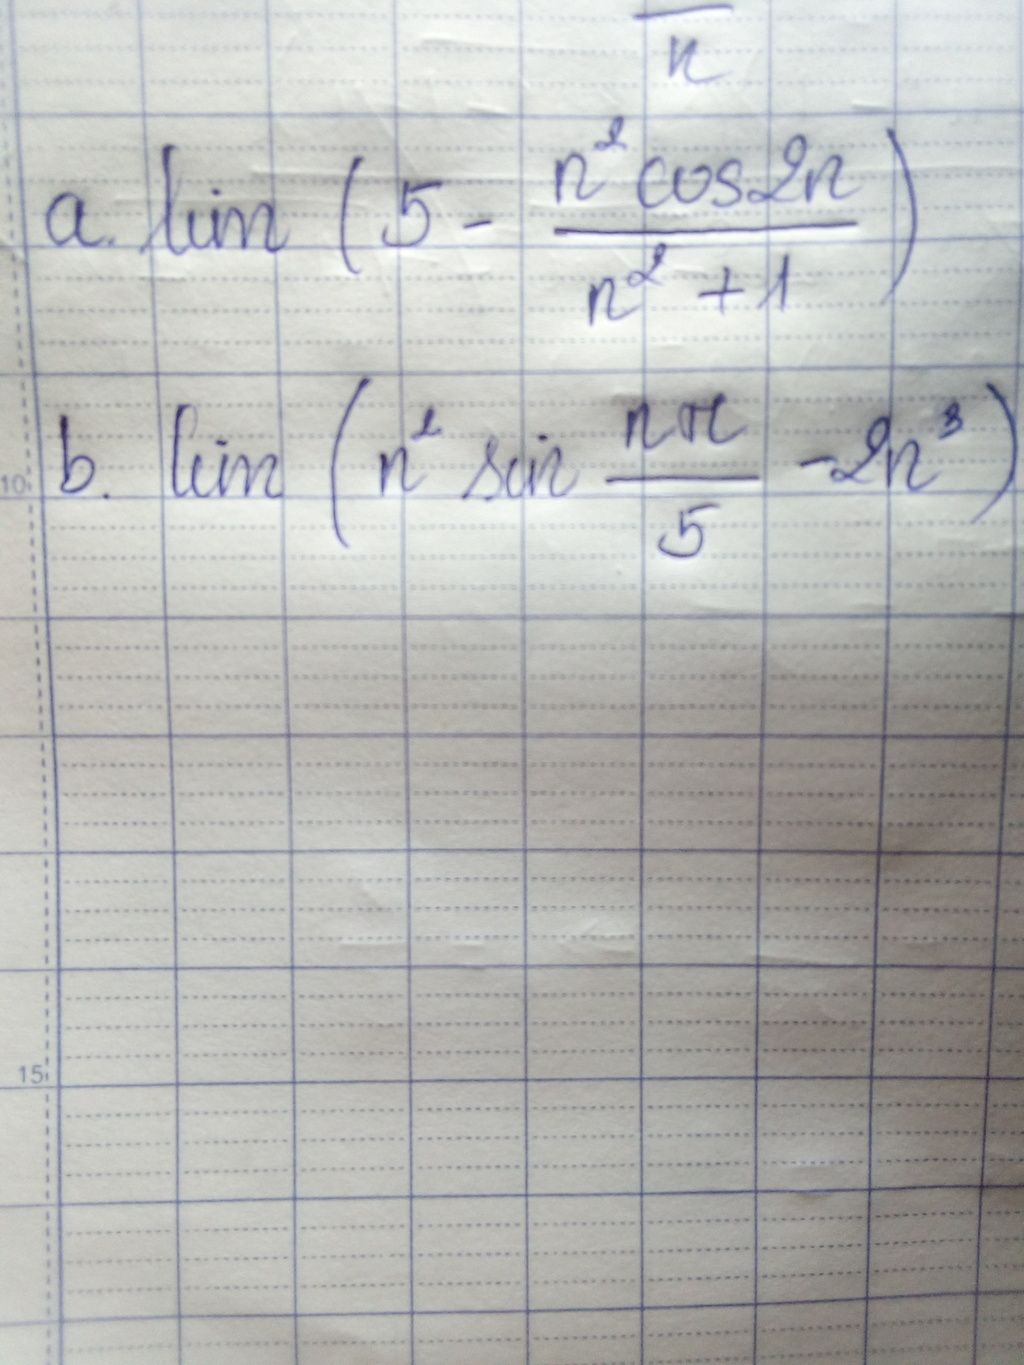 n
a. lim (5 - \frac{n² cos2n}{n² + 1})
b. lim (n² sin \frac{nπ}{5} - 2n³)
10
15